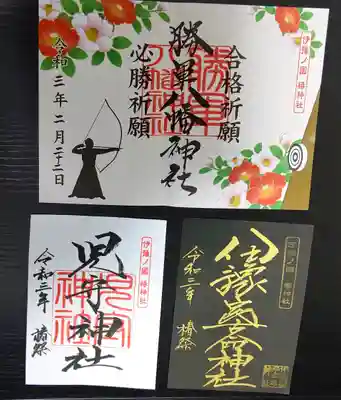 伊豫ノ國 椿神社
合格祈願
勝軍八幡神社
必勝祈願
令和三年二月二十二日
伊豫ノ國 椿神社
児守神社
令和三年 椿祭
伊豫ノ國 椿神社
伊豫豆比古命神社
令和三年 椿祭